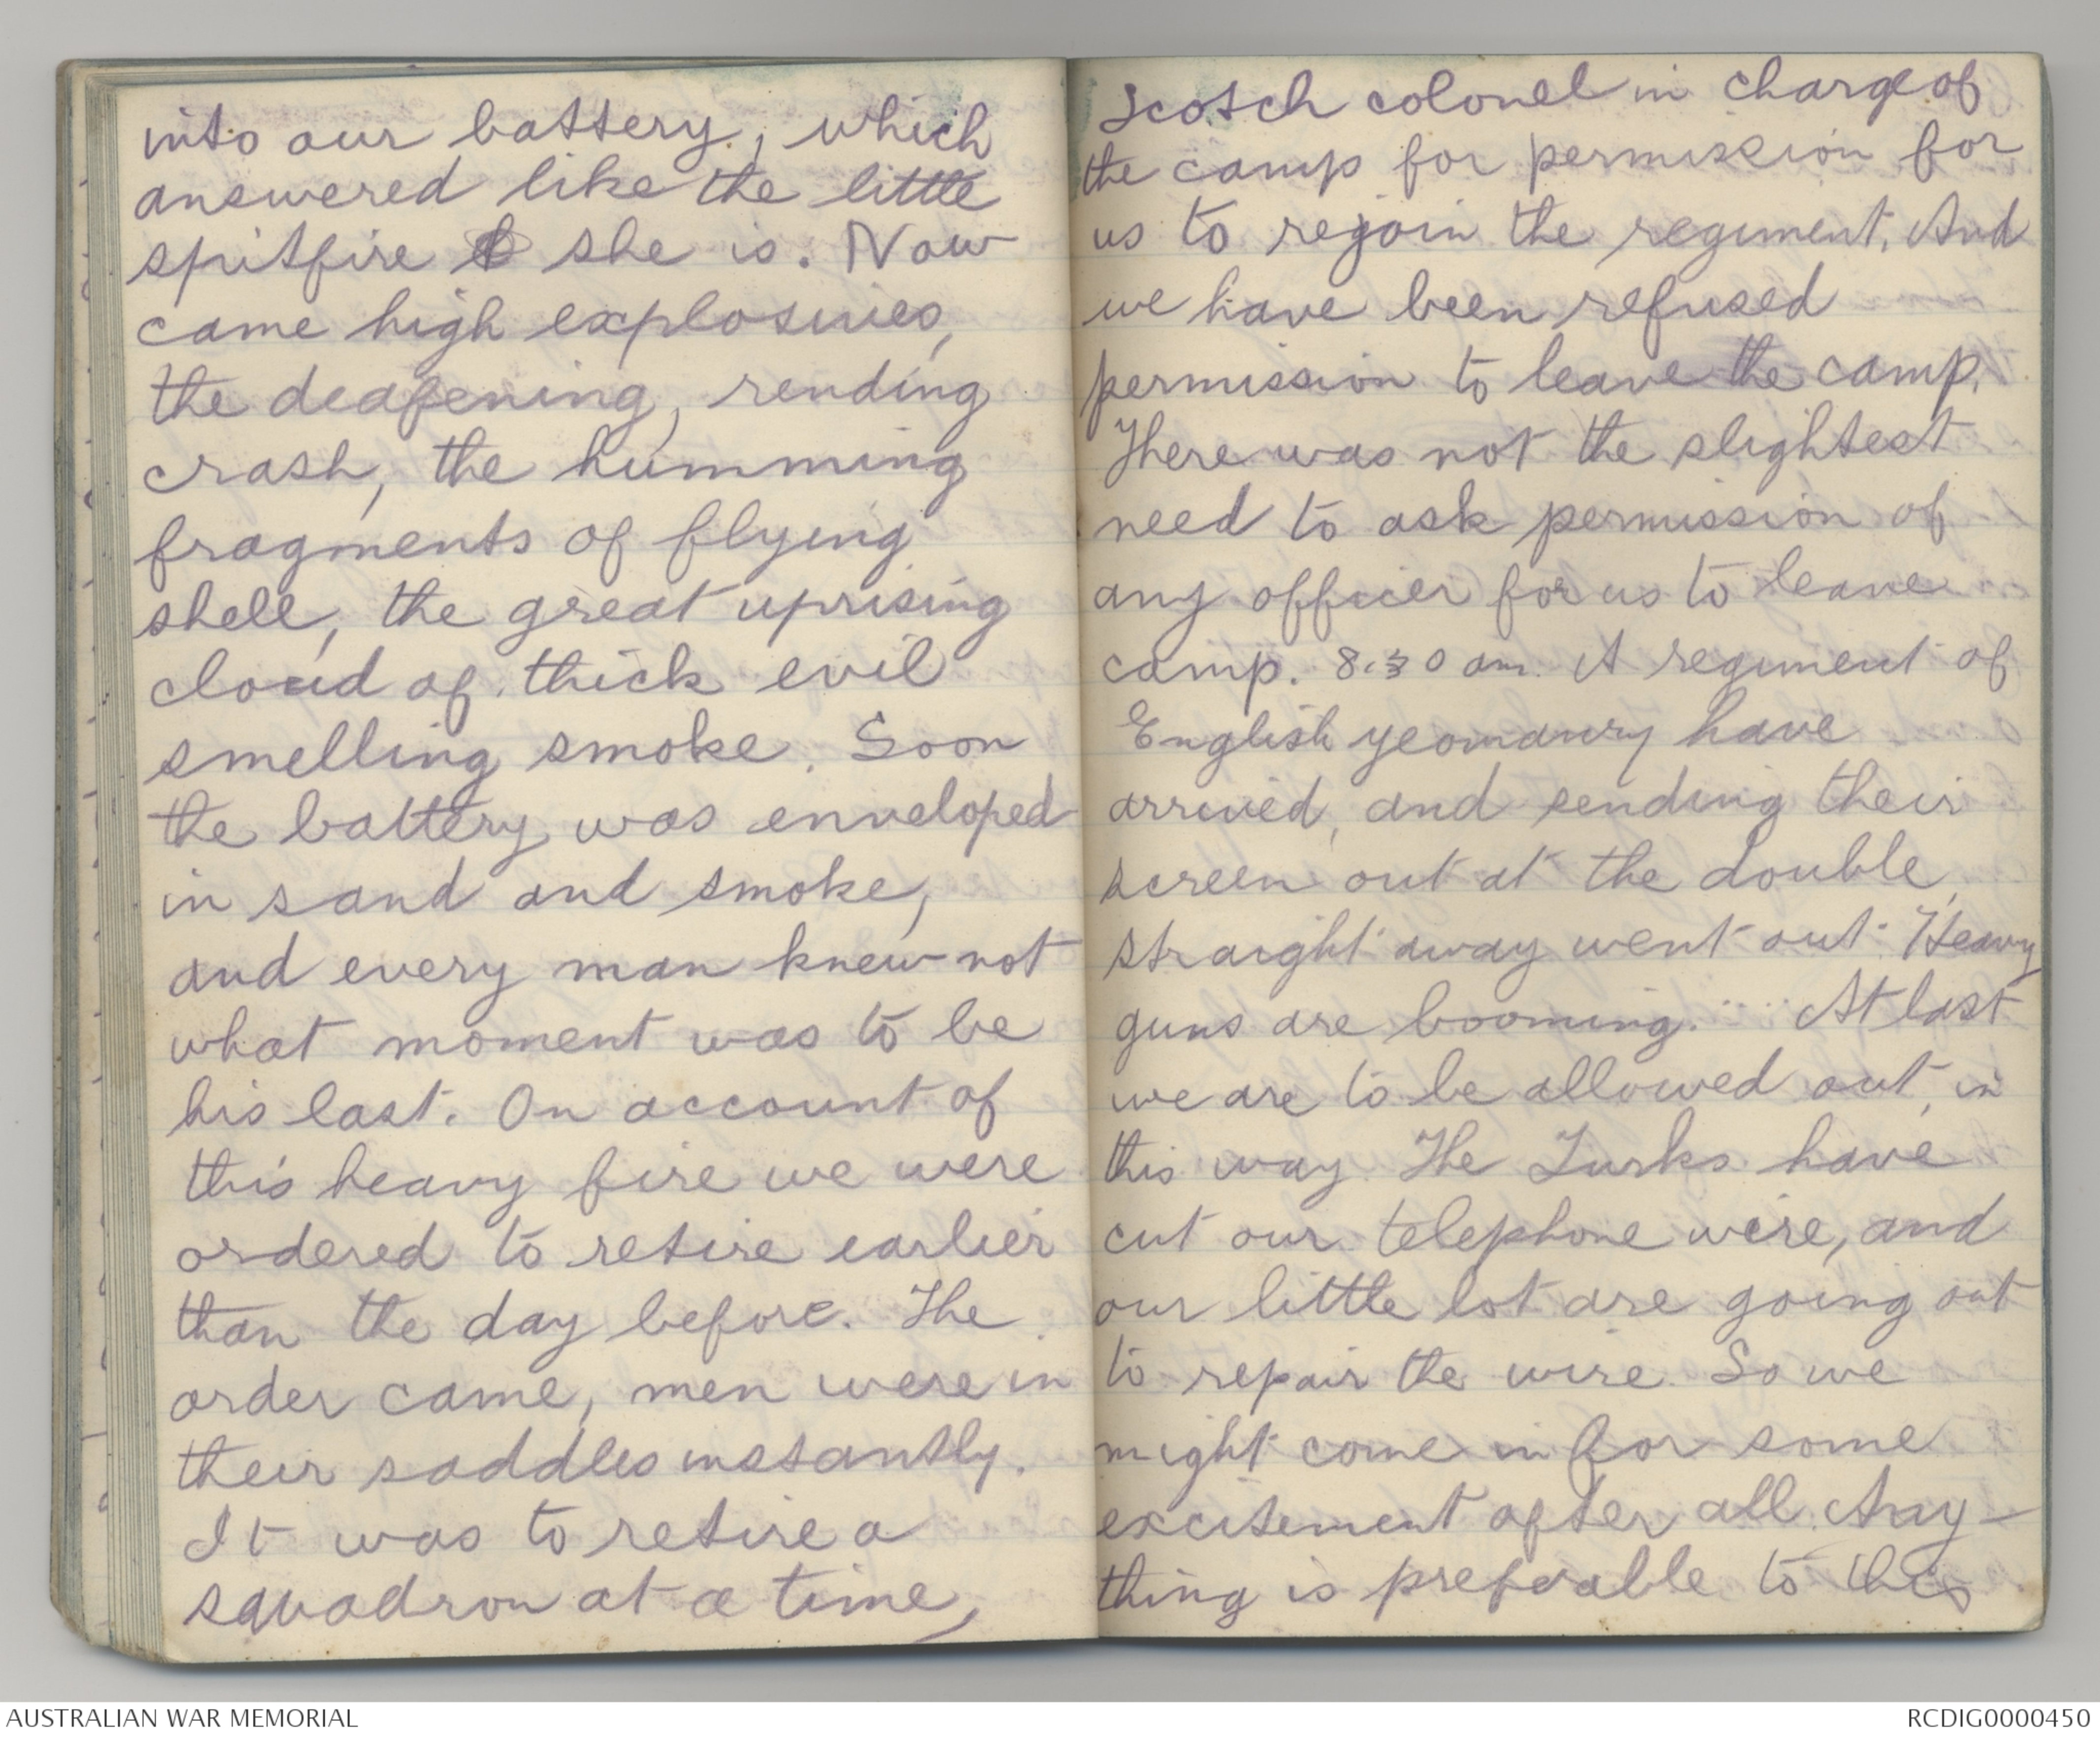 into our battery, which
answered like the little
spitfire she is. Now
came high explosives,
the deafening, rending
crash, the humming
fragments of flying
shell, the great uprising
cloud of thick evil
smelling smoke. Soon
the battery was enveloped
in sand and smoke,
and every man knew not
what moment was to be
his last. On account of
this heavy fire we were
ordered to retire earlier
than the day before. The
order came, men were in
their saddles instantly.
It was to retire a
squadron at a time,
Scotch colonel in charge of
the camp for permission for
us to rejoin the regiment. And
we have been refused
permission to leave the camp.
There was not the slightest
need to ask permission of
any officer for us to leave
camp. 8.30 am. A regiment of
English yeomanry have
arrived, and sending their
screen out at the double,
straight away went out. Heavy
guns are booming. .... At last
we are to be allowed out, in
this way. The Turks have
cut our telephone wire, and
our little lot are going out
to repair the wire. So we
might come in for some
excitement after all. Any-
thing is preferable to this
AUSTRALIAN WAR MEMORIAL
RCDIG0000450